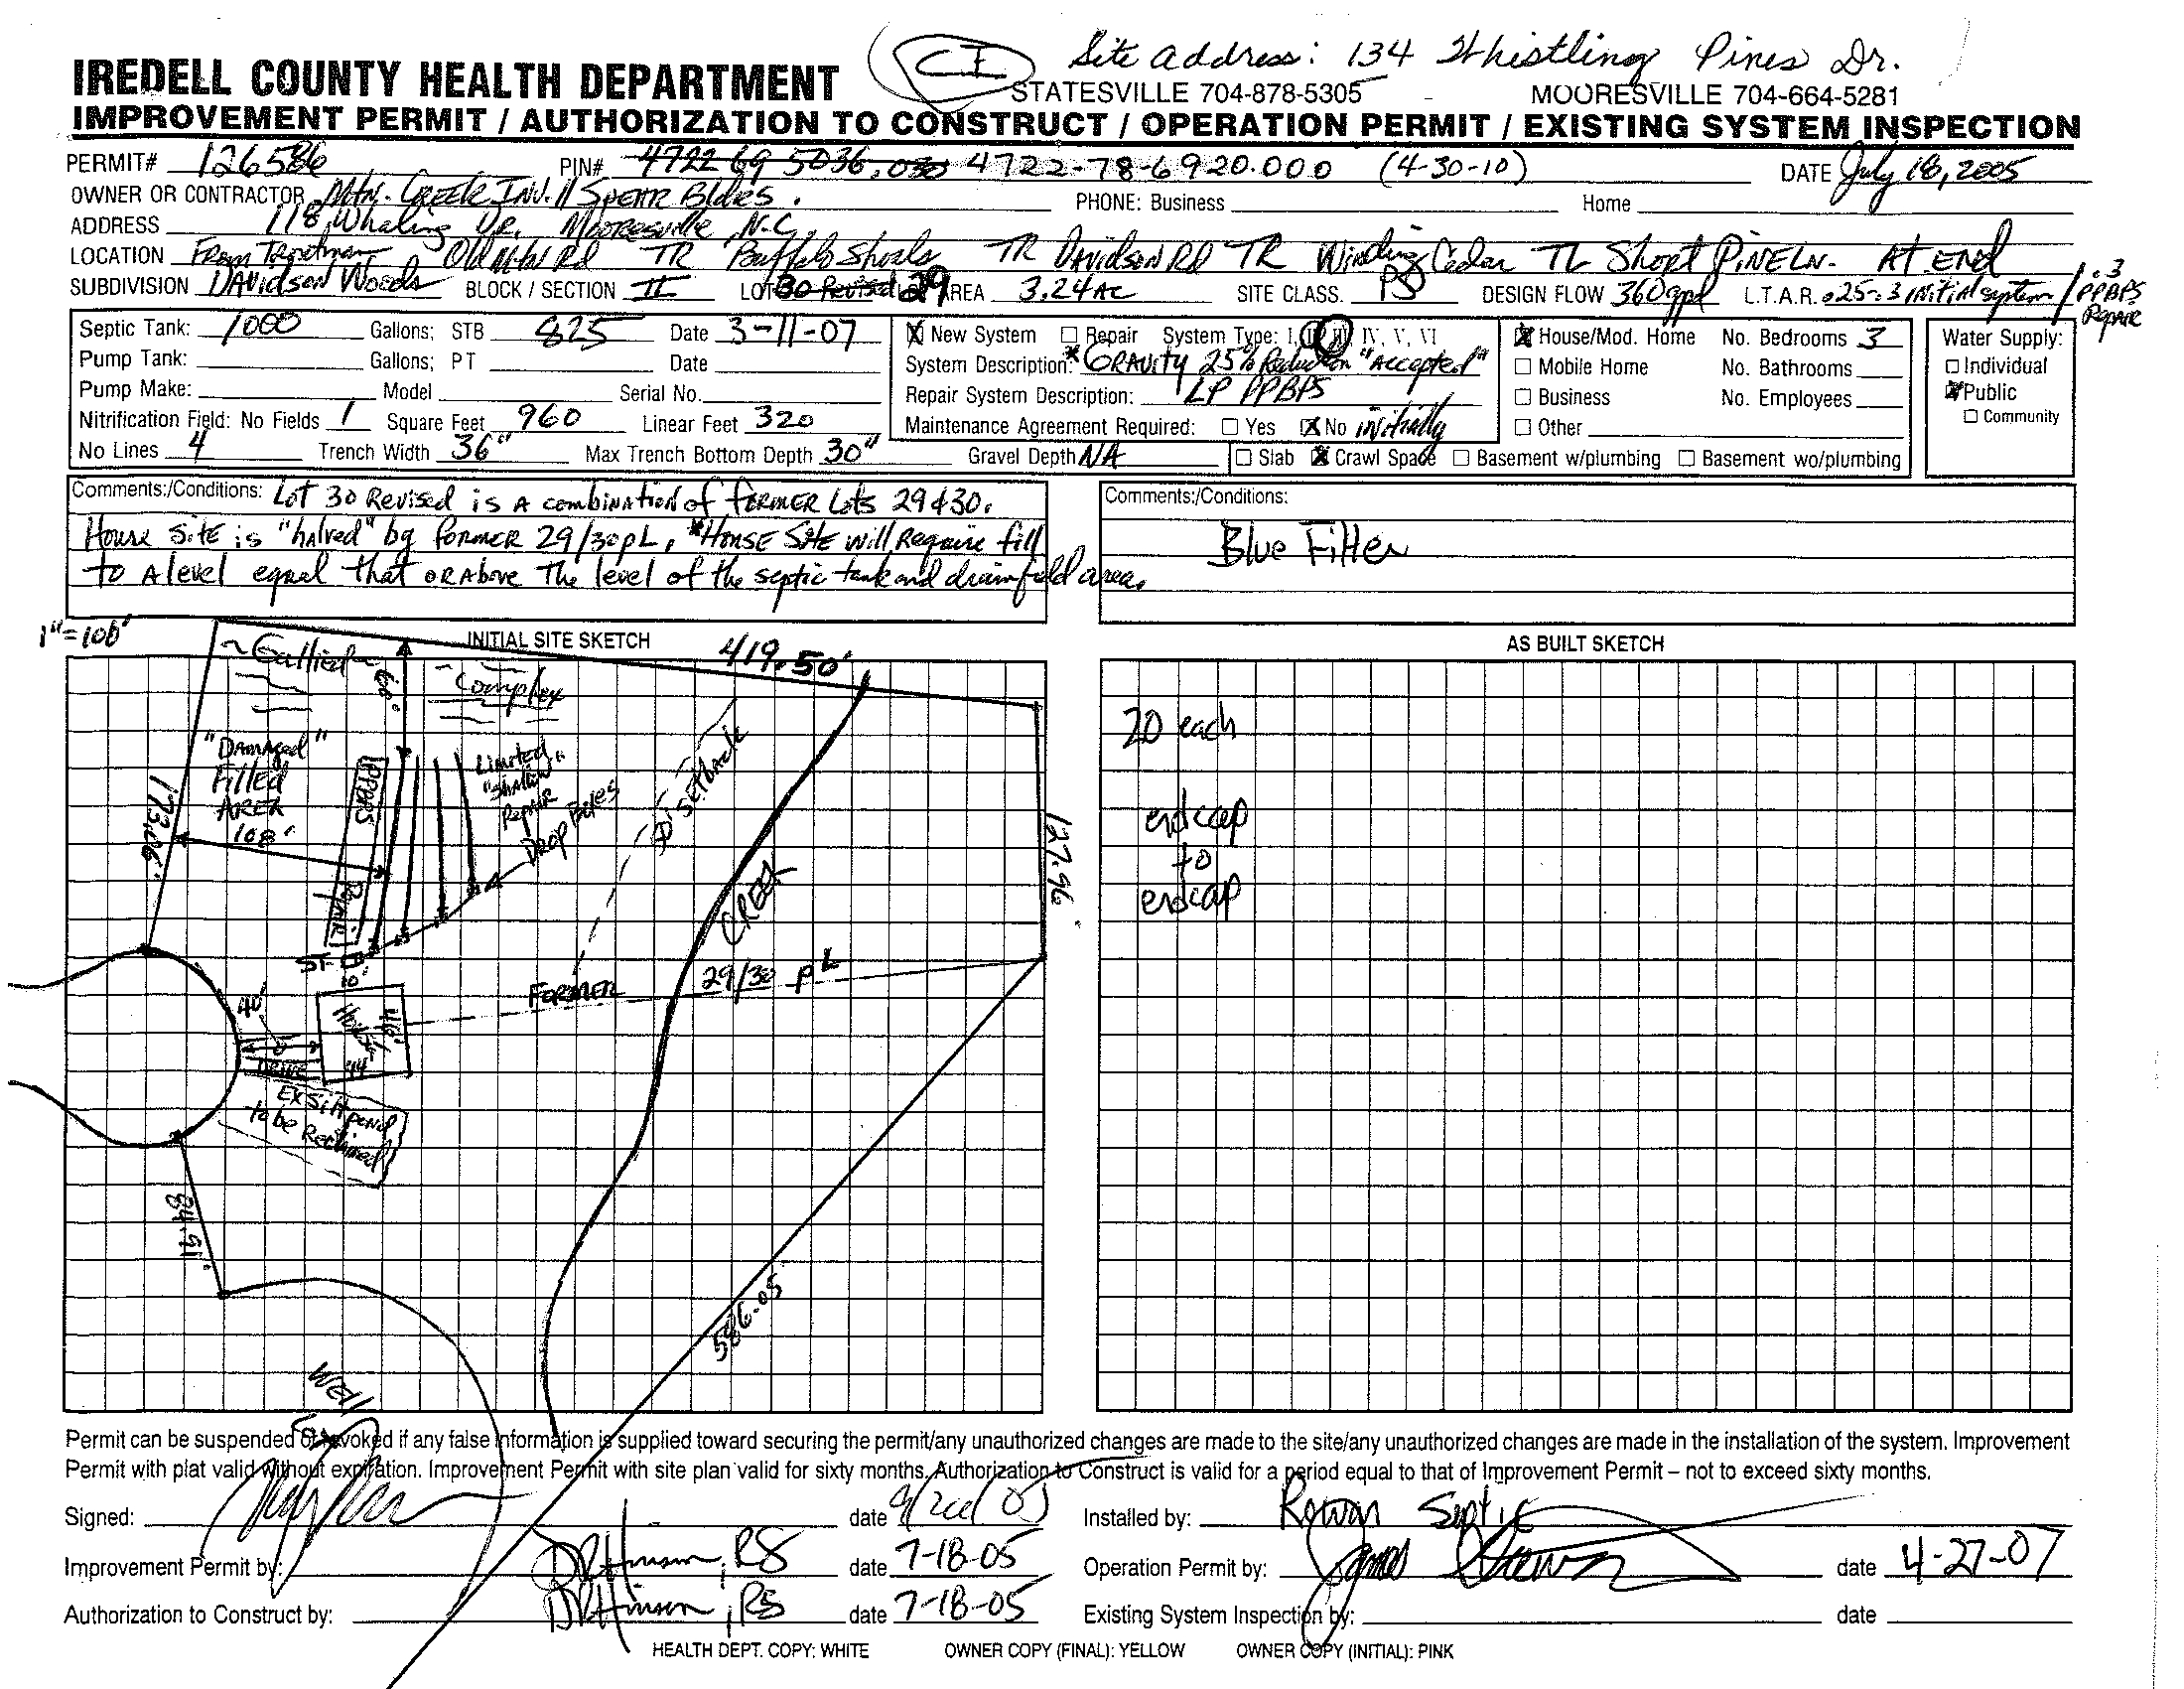 CI Site address: 134 Whistling Pines Dr.
IREDELL COUNTY HEALTH DEPARTMENT
STATESVILLE 704-878-5305 MOORESVILLE 704-664-5281
IMPROVEMENT PERMIT / AUTHORIZATION TO CONSTRUCT / OPERATION PERMIT / EXISTING SYSTEM INSPECTION
PERMIT# 126586 PIN# 4722 69 5036.030 4722-78-6920.000 (4-30-10) DATE July 18, 2005
OWNER OR CONTRACTOR Mtn. Creek Inv. // Spear Bldrs. PHONE: Business Home
ADDRESS 118 Whaling Dr. Mooresville, N.C.
LOCATION From Troutman Old Mtn Rd TR Buffalo Shoals TR Davidson Rd TR Winding Cedar TL Short Pine Ln. At End
SUBDIVISION Davidson Woods BLOCK / SECTION II LOT 30 Revised 29 AREA 3.24 AC SITE CLASS. PS DESIGN FLOW 360gpd L.T.A.R. .25-.3 initial system / .3 PPBPS Repair
Septic Tank: 1000 Gallons; STB 825 Date 3-11-07
Pump Tank: Gallons; PT Date
Pump Make: Model Serial No.
Nitrification Field: No Fields 1 Square Feet 960 Linear Feet 320
No Lines 4 Trench Width 36" Max Trench Bottom Depth 30" Gravel Depth NA
New System Repair System Type: I, II, III, IV, V, VI
System Description: * Gravity 25% Reduction "Accepted"
Repair System Description: LP PPBPS
Maintenance Agreement Required: Yes No initially
House/Mod. Home No. Bedrooms 3
Mobile Home No. Bathrooms
Business No. Employees
Other
Slab Crawl Space Basement w/plumbing Basement wo/plumbing
Water Supply:
Individual
Public
Community
Comments:/Conditions: Lot 30 Revised is a combination of former Lots 29 & 30.
House site is "halved" by former 29/30 pL, *House Site will Require fill
to a level equal that or above the level of the septic tank and drainfield area.
Comments:/Conditions:
Blue Filter
1"=100'
INITIAL SITE SKETCH
~Gullied~
60'
~Complex
419.50'
"Damaged"
Filled
Area
108'
173.06'
PPBPS
Repair
Limited
"shallow"
Repair
Drop Boxes
setback
Creek
127.96'
ST
10'
Former 29/30 pL
40'
House
46'
44
Drive
Ex silt pond
to be Reclaimed
84.91'
586.05
Well
AS BUILT SKETCH
20 each
endcap
to
endcap
Permit can be suspended or revoked if any false information is supplied toward securing the permit/any unauthorized changes are made to the site/any unauthorized changes are made in the installation of the system. Improvement
Permit with plat valid without expiration. Improvement Permit with site plan valid for sixty months. Authorization to Construct is valid for a period equal to that of Improvement Permit – not to exceed sixty months.
Signed: date Installed by: Rowan Septic
Improvement Permit by: DR Hinson, RS date 7-18-05 Operation Permit by: James date 4-27-07
Authorization to Construct by: DR Hinson, RS date 7-18-05 Existing System Inspection by: date
HEALTH DEPT. COPY: WHITE OWNER COPY (FINAL): YELLOW OWNER COPY (INITIAL): PINK